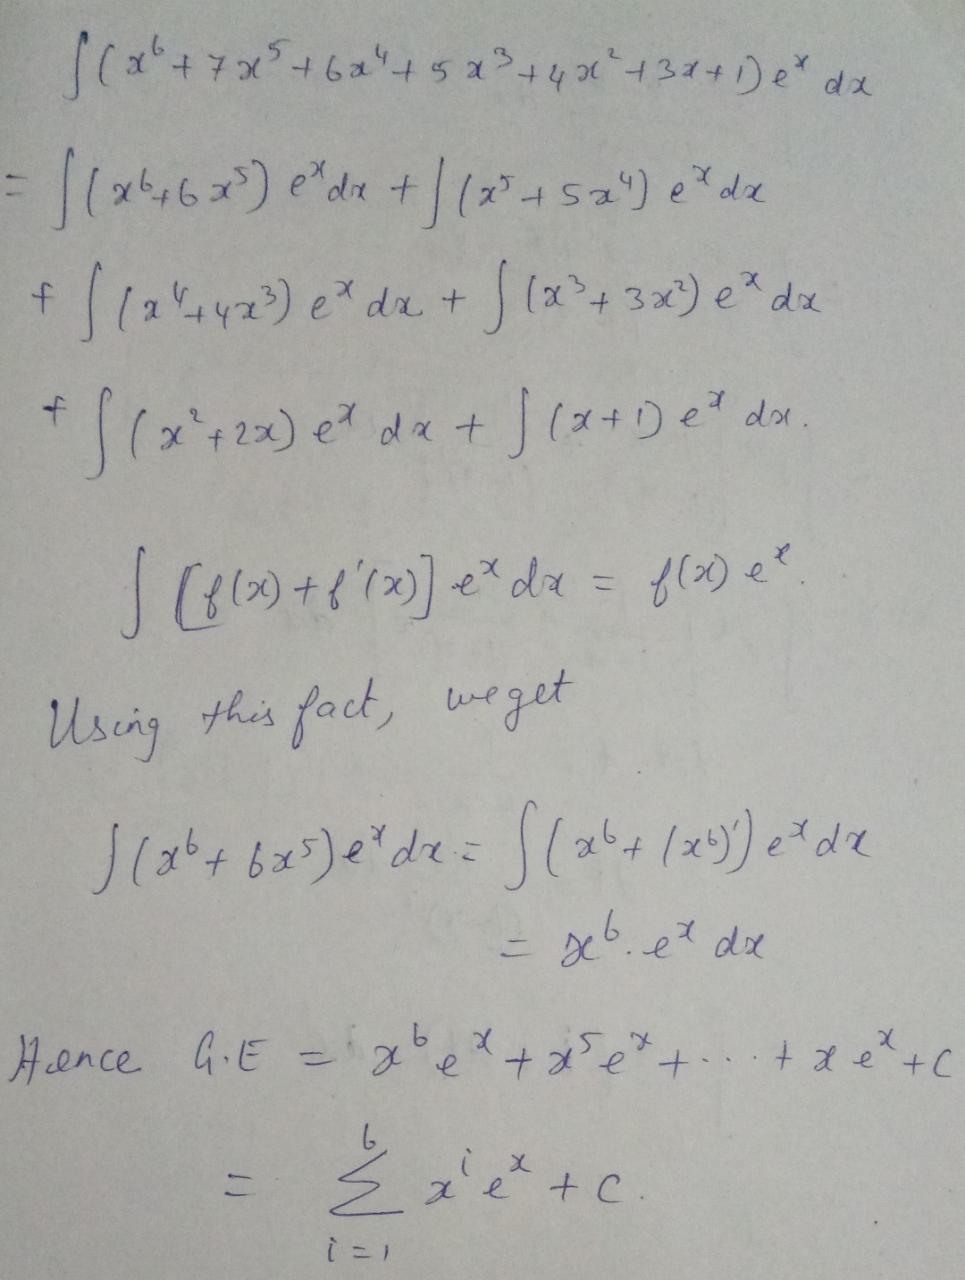 ∫(x⁶+7x⁵+6x⁴+5x³+4x²+3x+1)eˣ dx
= ∫(x⁶+6x⁵) eˣdx + ∫(x⁵+5x⁴) eˣ dx
+ ∫(x⁴+4x³) eˣ dx + ∫(x³+3x²) eˣ dx
+ ∫(x²+2x) eˣ dx + ∫(x+1) eˣ dx.
∫[f(x)+f'(x)] eˣ dx = f(x) eˣ.
Using this fact, we get
∫(x⁶+6x⁵)eˣ dx = ∫(x⁶+(x⁶)') eˣ dx
= x⁶.eˣ dx
Hence G.E = x⁶eˣ+x⁵eˣ+...+xeˣ+C
= 6∑i=1 xⁱeˣ + C.